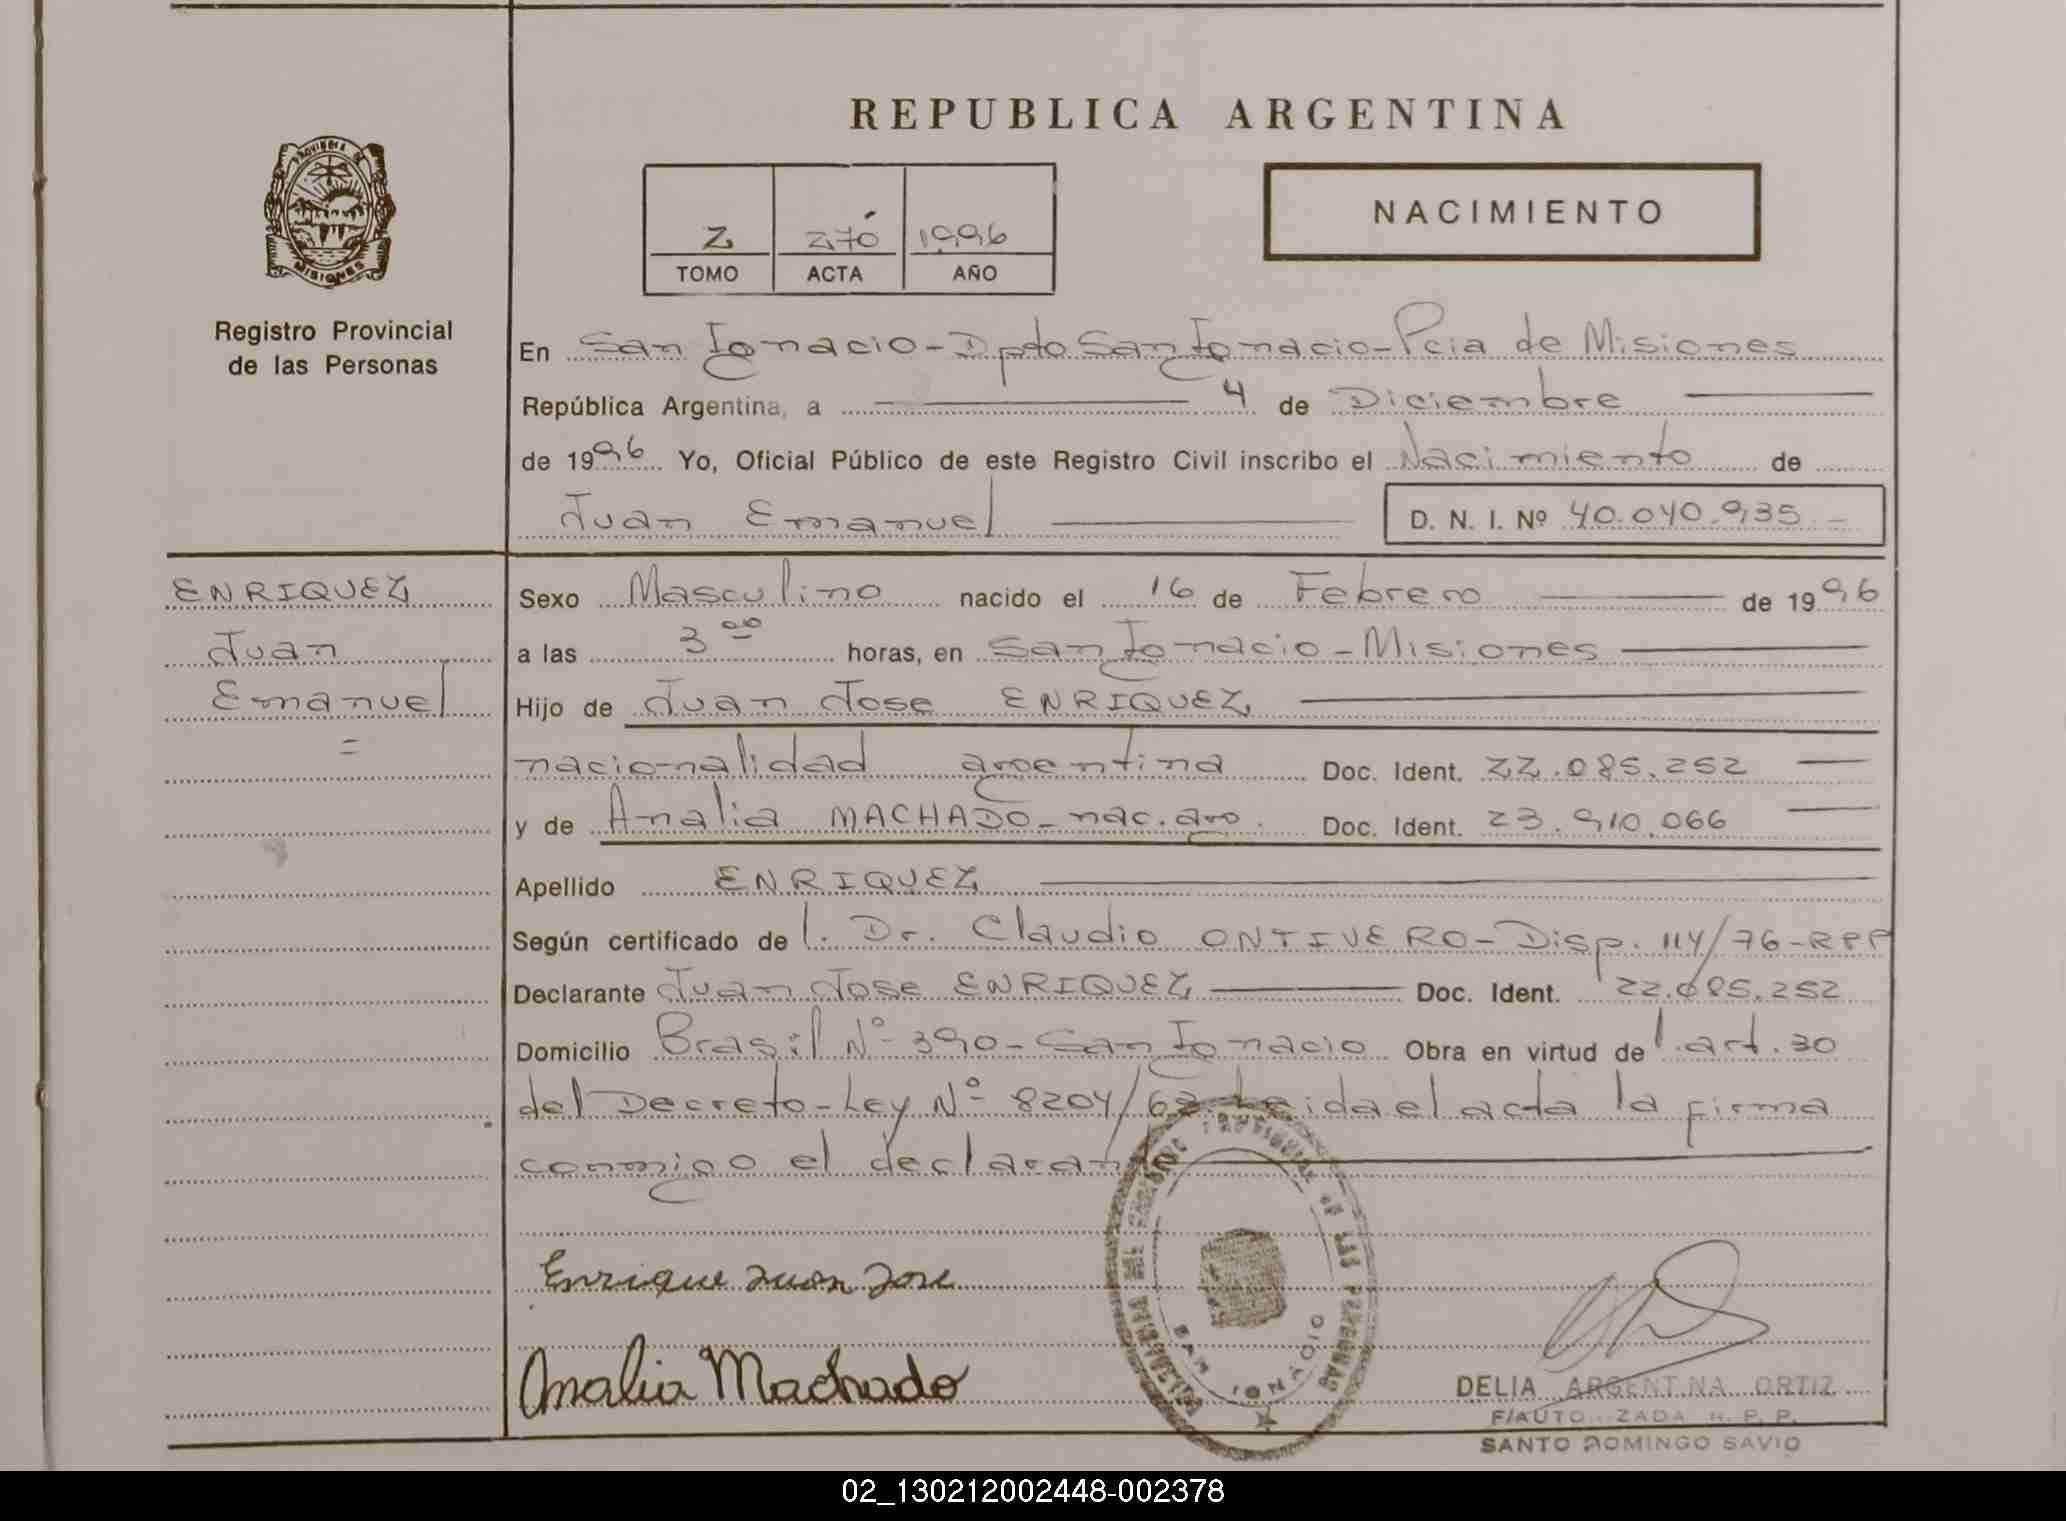 REPUBLICA ARGENTINA
PROVINCIA DE
MISIONES
Registro Provincial
de las Personas
2 270 1996
TOMO ACTA AÑO
NACIMIENTO
En San Ignacio - Dpto San Ignacio - Pcia de Misiones
República Argentina, a 4 de Diciembre
de 1996 Yo, Oficial Público de este Registro Civil inscribo el Nacimiento de
Juan Emanuel D. N. I. Nº 40.040.935 -
ENRIQUEZ
Juan
Emanuel
=
Sexo Masculino nacido el 16 de Febrero de 1996
a las 3 00 horas, en San Ignacio - Misiones
Hijo de Juan Jose ENRIQUEZ
nacionalidad argentina Doc. Ident. 22.085.252
y de Analia MACHADO - nac. arg. Doc. Ident. 23.910.066
Apellido ENRIQUEZ
Según certificado de l. Dr. Claudio ONTIVERO - Disp. 114/76 - RPP
Declarante Juan Jose ENRIQUEZ Doc. Ident. 22.085.252
Domicilio Brasil Nº 390 - San Ignacio Obra en virtud de l. art. 30
del Decreto - Ley Nº 8204/63. Leida el acta la firma
conmigo el declarant
Enrique Juan Jose
Analia Machado
PROVINCIAL DE LAS PERSONAS
SAN IGNACIO
DELIA ARGENTINA ORTIZ
F/AUTORIZADA R. P. P.
SANTO DOMINGO SAVIO
02_130212002448-002378